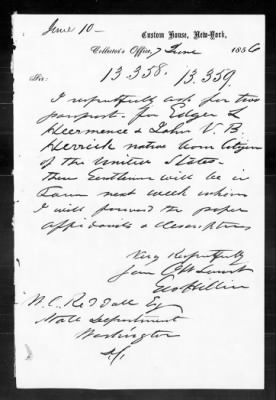 June 10 —
Custom House, New-York,
Collector's Office, 7 June 1886
Sir:
13.358. 13.359.
I respectfully ask for two
passports for Edgar L
Heermance & John V. B.
Herrick native born Citizens
of the United States.
These Gentlemen will be in
Town next week when
I will forward the proper
affidavits & descriptions
Very Respectfully
Your Obt Servt
N. C. Esq
State Department
Washington